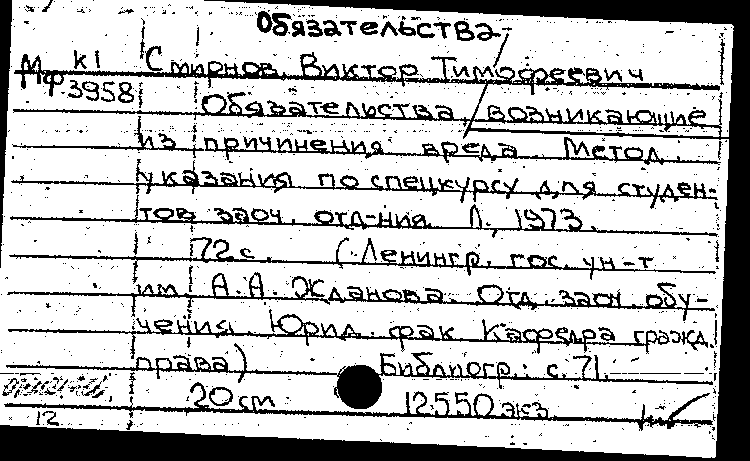 Обязательства
Мф k1 Смирнов, Виктор Тимофеевич
3958 Обязательства, возникающие
из причинения вреда. Метод.
указания по спецкурсу для студен-
тов заоч. отд-ния. Л., 1973.
72 с. (Ленингр. гос. ун-т
им. А.А. Жданова. Отд. заоч. обу-
чения. Юрид. фак. Кафедра гражд.
права) Библиогр.: с. 71.
20 см 12550 экз.
12